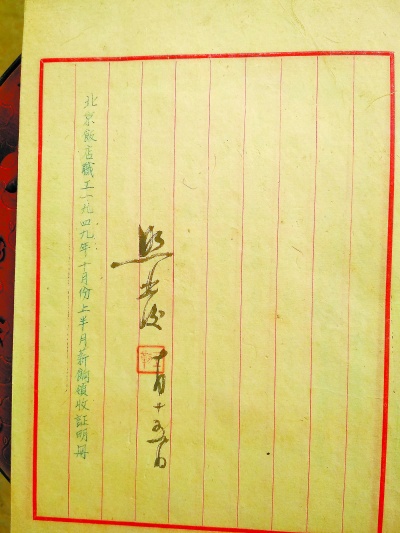 照
十月十五日
北京飯店職工一九四九年十月份上半月薪餉領收証明冊